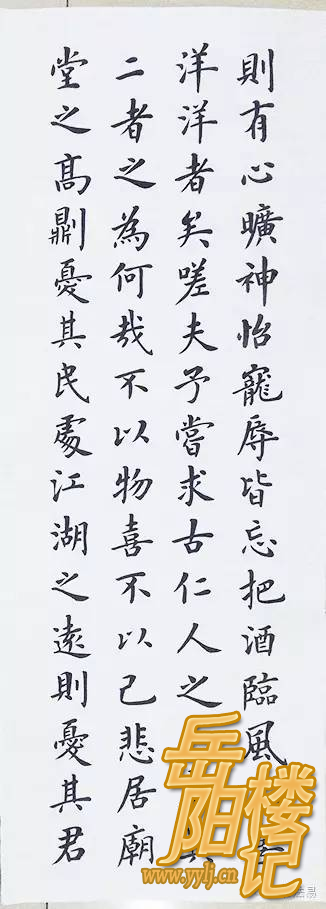 則有心曠神怡寵辱皆忘把酒臨風
洋洋者矣嗟夫予嘗求古仁人之
二者之為何哉不以物喜不以己悲居廟
堂之髙則憂其民處江湖之遠則憂其君
岳阳楼记
www.yylj.cn